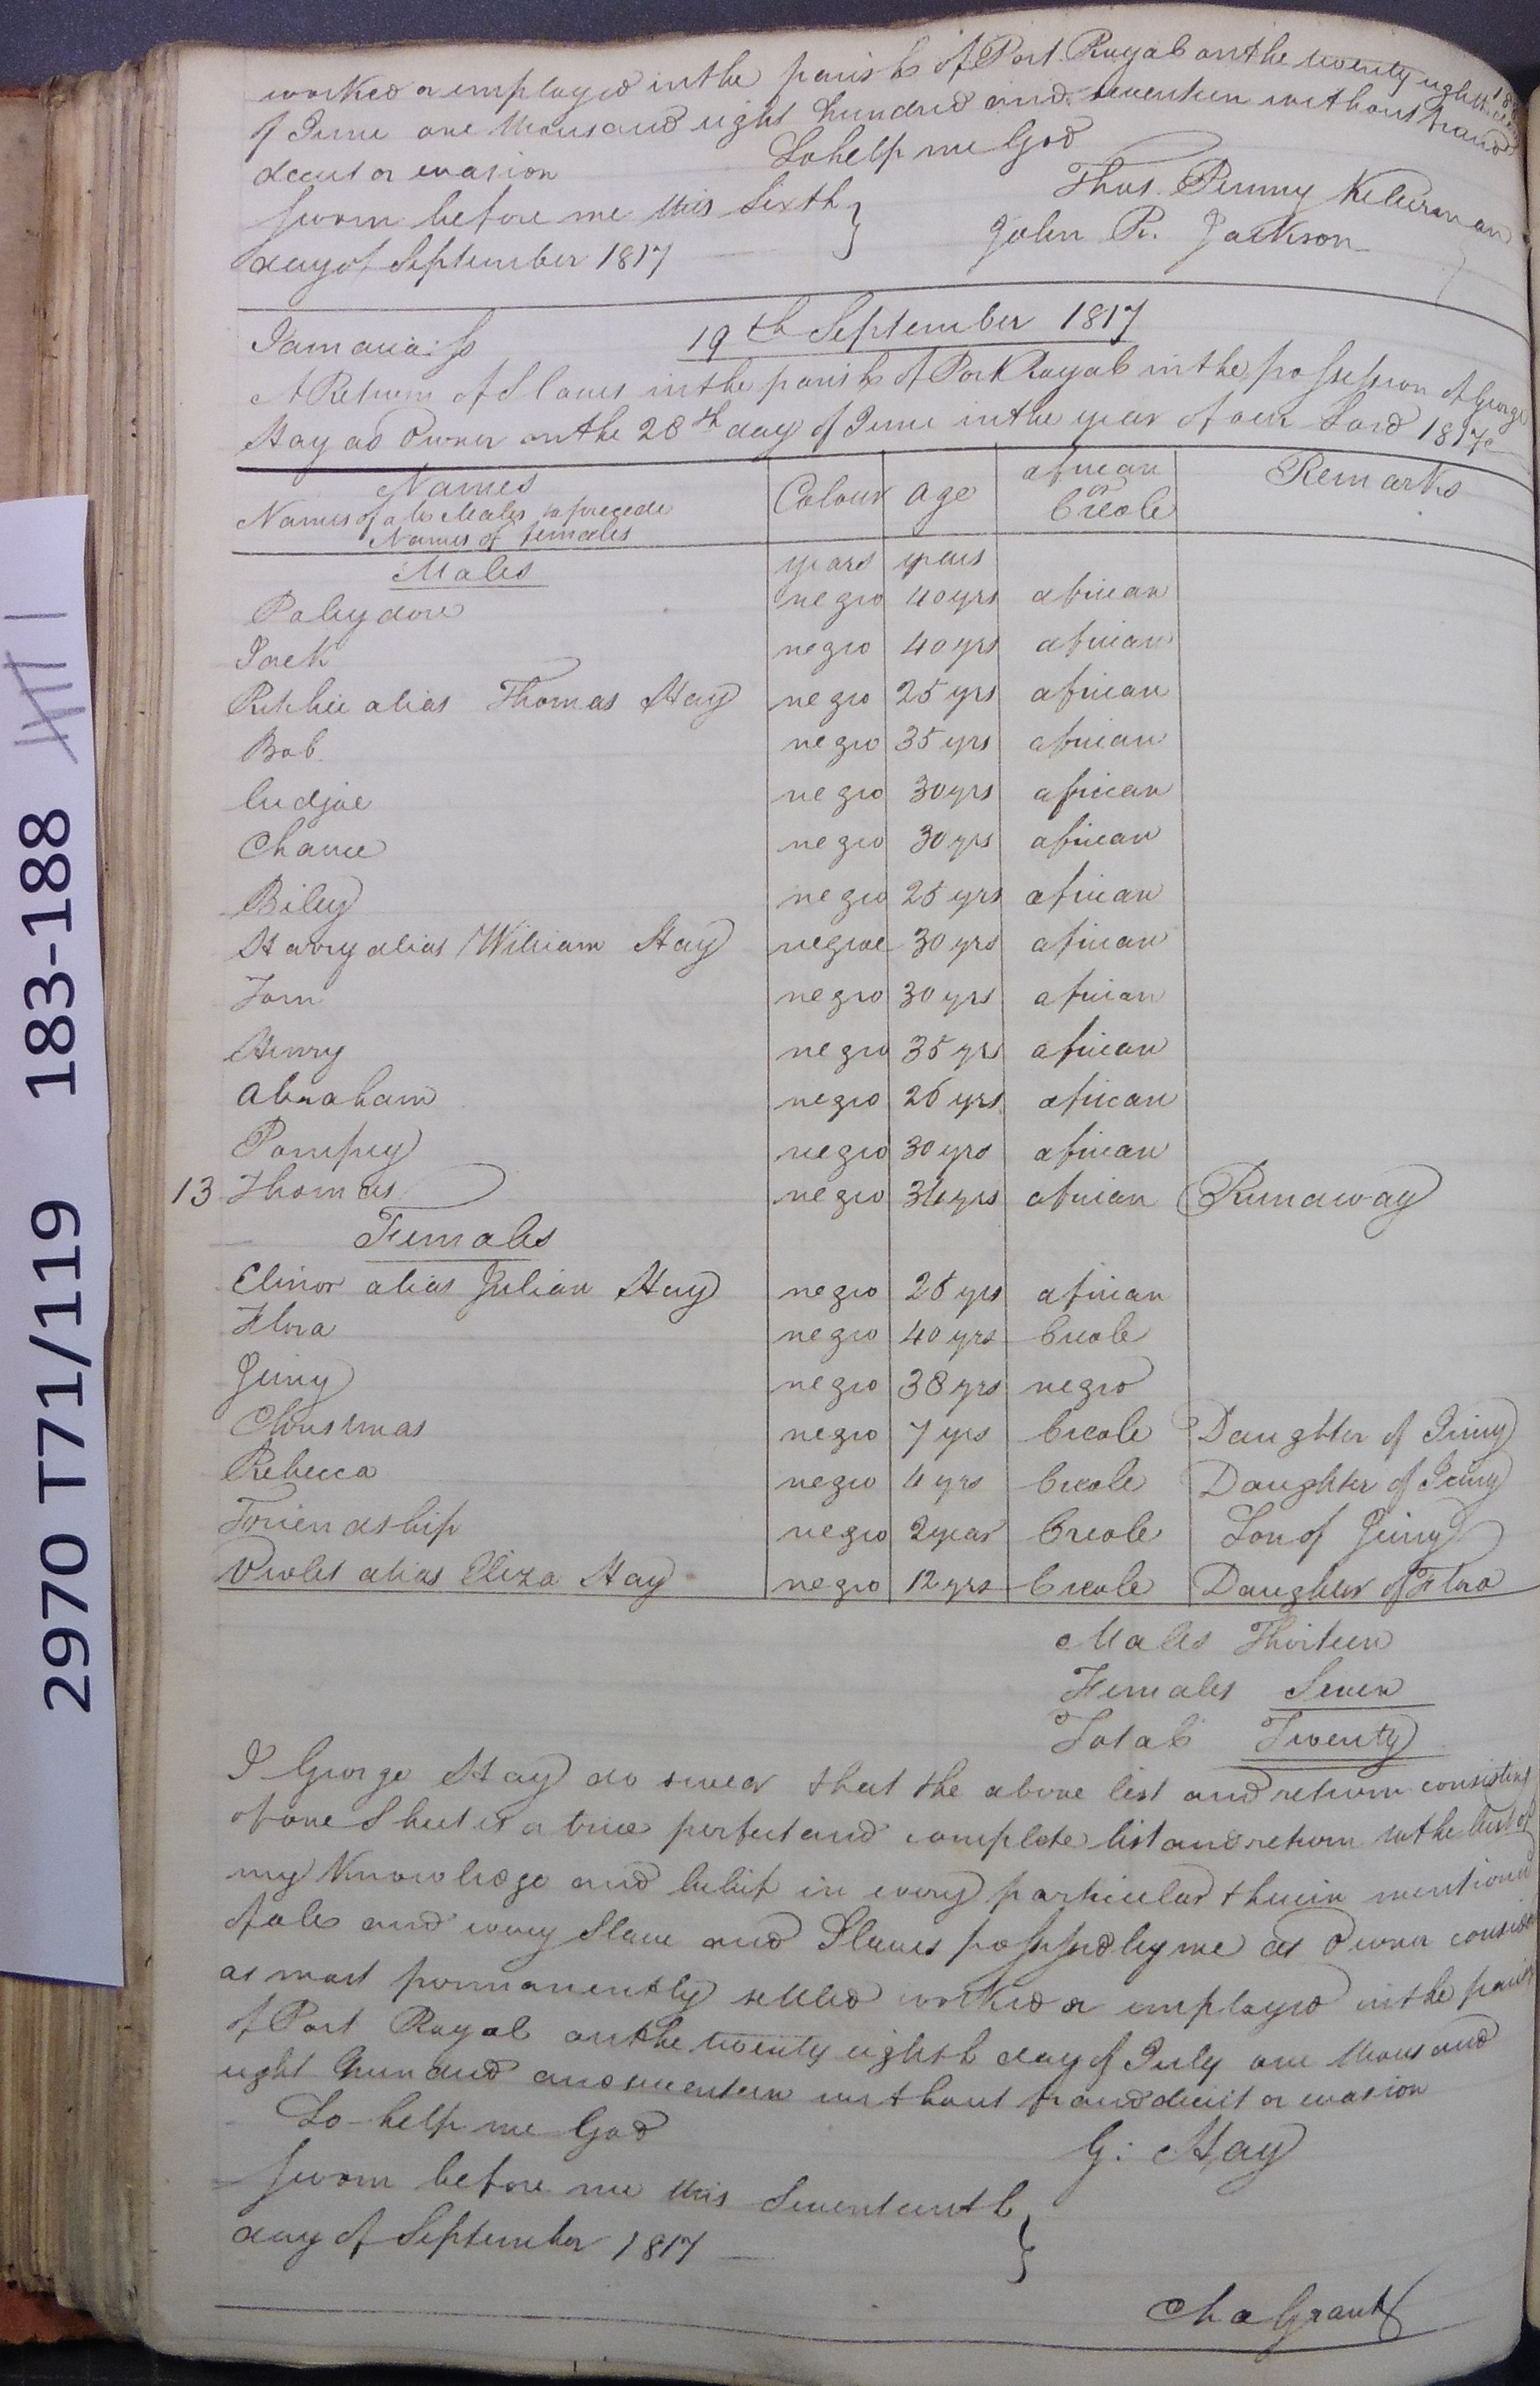 worked or employed in the parish of Port Royal on the twenty eighth day
of June one thousand eight hundred and seventeen without fraud
deceit or evasion So help me God
Thos. Penny Kelerman
Sworn before me this Sixth }
day of September 1817 John R. Jackson
Jamaica Ss 19th September 1817
A Return of Slaves in the parish of Port Royal in the possession of George
Hay as Owner on the 28th day of June in the year of our Lord 1817
Names
Names of als Males to precede
Names of females
Colour
age
african
or
Creole
Remarks
Males years years
Polydore negro 40 yrs african
Jack negro 40 yrs african
Ritchie alias Thomas Hay negro 25 yrs african
Bob negro 35 yrs african
Cudjoe negro 30 yrs african
Chance negro 30 yrs african
Biley negro 25 yrs african
Harry alias William Hay negroe 30 yrs african
Tom negro 30 yrs african
Henry negro 35 yrs african
Abraham negro 25 yrs african
Pompey negro 30 yrs african
13 Thomas negro yrs african Runaway
Females
Elinor alias Julian Hay negro 25 yrs african
Flora negro 40 yrs Creole
Jenny negro 38 yrs negro
Christmas negro 7 yrs Creole Daughter of Jenny
Rebecca negro 4 yrs Creole Daughter of Jenny
Friendship negro 2 year Creole Son of Jenny
Violet alias Eliza Hay negro 12 yrs Creole Daughter of Flora
Males Thirteen
Females Seven
Total Twenty
I George Hay do swear that the above list and return consisting
of one Sheet is a true perfect and complete list and return to the best of
my Knowledge and belief in every particular therein mentioned
of als and every Slave and Slaves possessed by me as Owner considered
as most permanently settled worked or employed in the parish
of Port Royal on the twenty eighth day of July one thousand
eight hundred and seventeen without fraud deceit or evasion
So help me God G: Hay
Sworn before me this Seventeenth }
day of September 1817
Cha Grant
2970 T71/119 183-188